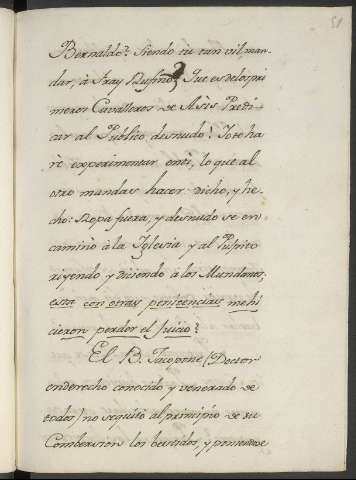 51
Bernaldo? Siendo tu tan vil, man
dar, à Fray Rufino? Que es delos pri
meros Cavalleros de Asis Predi
car al Publico, desnudo? Yo te ha
rè experimentar enti, lo que al
otro mandas hacer. Dicho, y he
cho: Ropa fuera, y desnudo se en
caminò à la Iglesia y al Pulpito
riyendo, y diciendo à los Mundanos,
esta con otras penitencias me hi
cieron perder el Juicio?
El B. Jacopone (Doctor
enderecho conocido y venerado de
todos) no seguito al principio de su
Combercion los bestidos, y poniendose